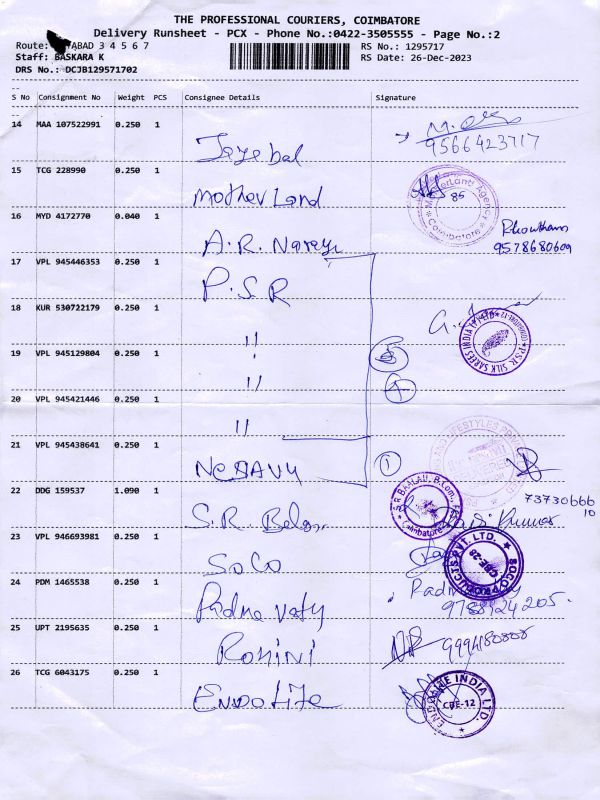 THE PROFESSIONAL COURIERS, COIMBATORE
Delivery Runsheet - PCX - Phone No.:0422-3505555 - Page No.:2
Route: ABAD 3 4 5 6 7 RS No.: 1295717
Staff: BASKARA K RS Date: 26-Dec-2023
DRS No.: DCJB129571702
S No Consignment No Weight PCS Consignee Details Signature
14 MAA 107522991 0.250 1
9566423717
15 TCG 228990 0.250 1
Mother Land 85 Coimbatore
16 MYD 4172770 0.040 1
A.R. 9578680609
17 VPL 945446353 0.250 1
P.S.R
18 KUR 530722179 0.250 1
" PSR SILK SAREES INDIA
19 VPL 945129804 0.250 1
"
20 VPL 945421446 0.250 1
"
21 VPL 945438641 0.250 1
NESAVU 1
22 DDG 159537 1.090 1 7373066610
S.R. S.R BAALAJI, B.Com., Coimbatore Kumar
23 VPL 946693981 0.250 1
SoCo SOCO PRODUCTS PVT. LTD. CBE-28
24 PDM 1465538 0.250 1
Padma vaty 9788124205.
25 UPT 2195635 0.250 1
Rohini 9994180808
26 TCG 6043175 0.250 1
Endo Life INDIA LTD. CBE-12